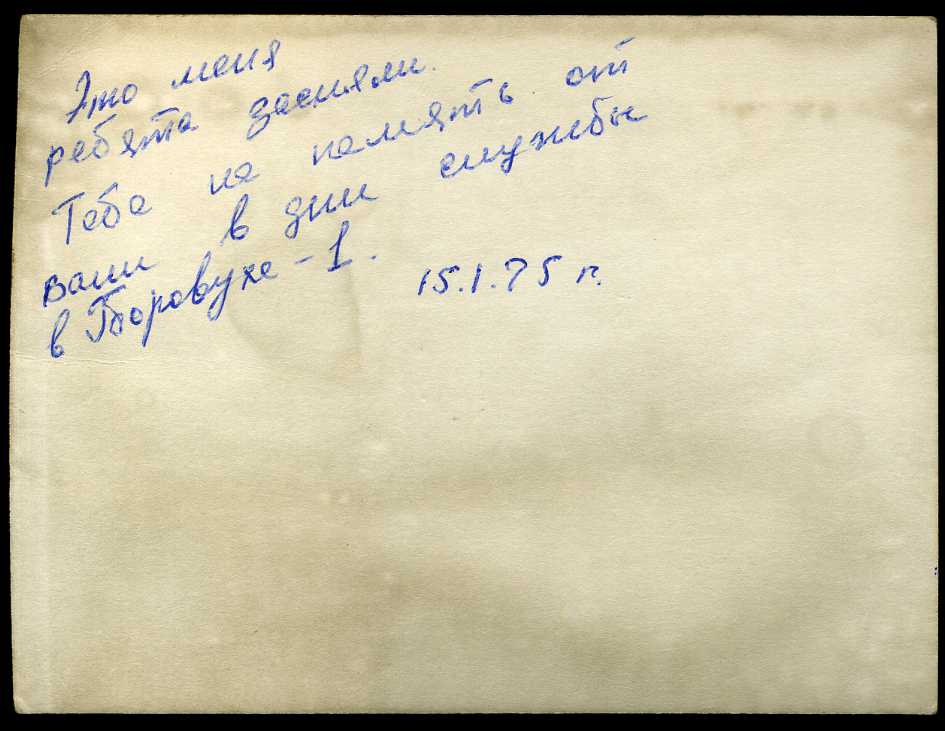 Это меня
ребята засняли.
Тебе на память от
вани в дни службы
в Боровухе-1.
15.1.75 г.